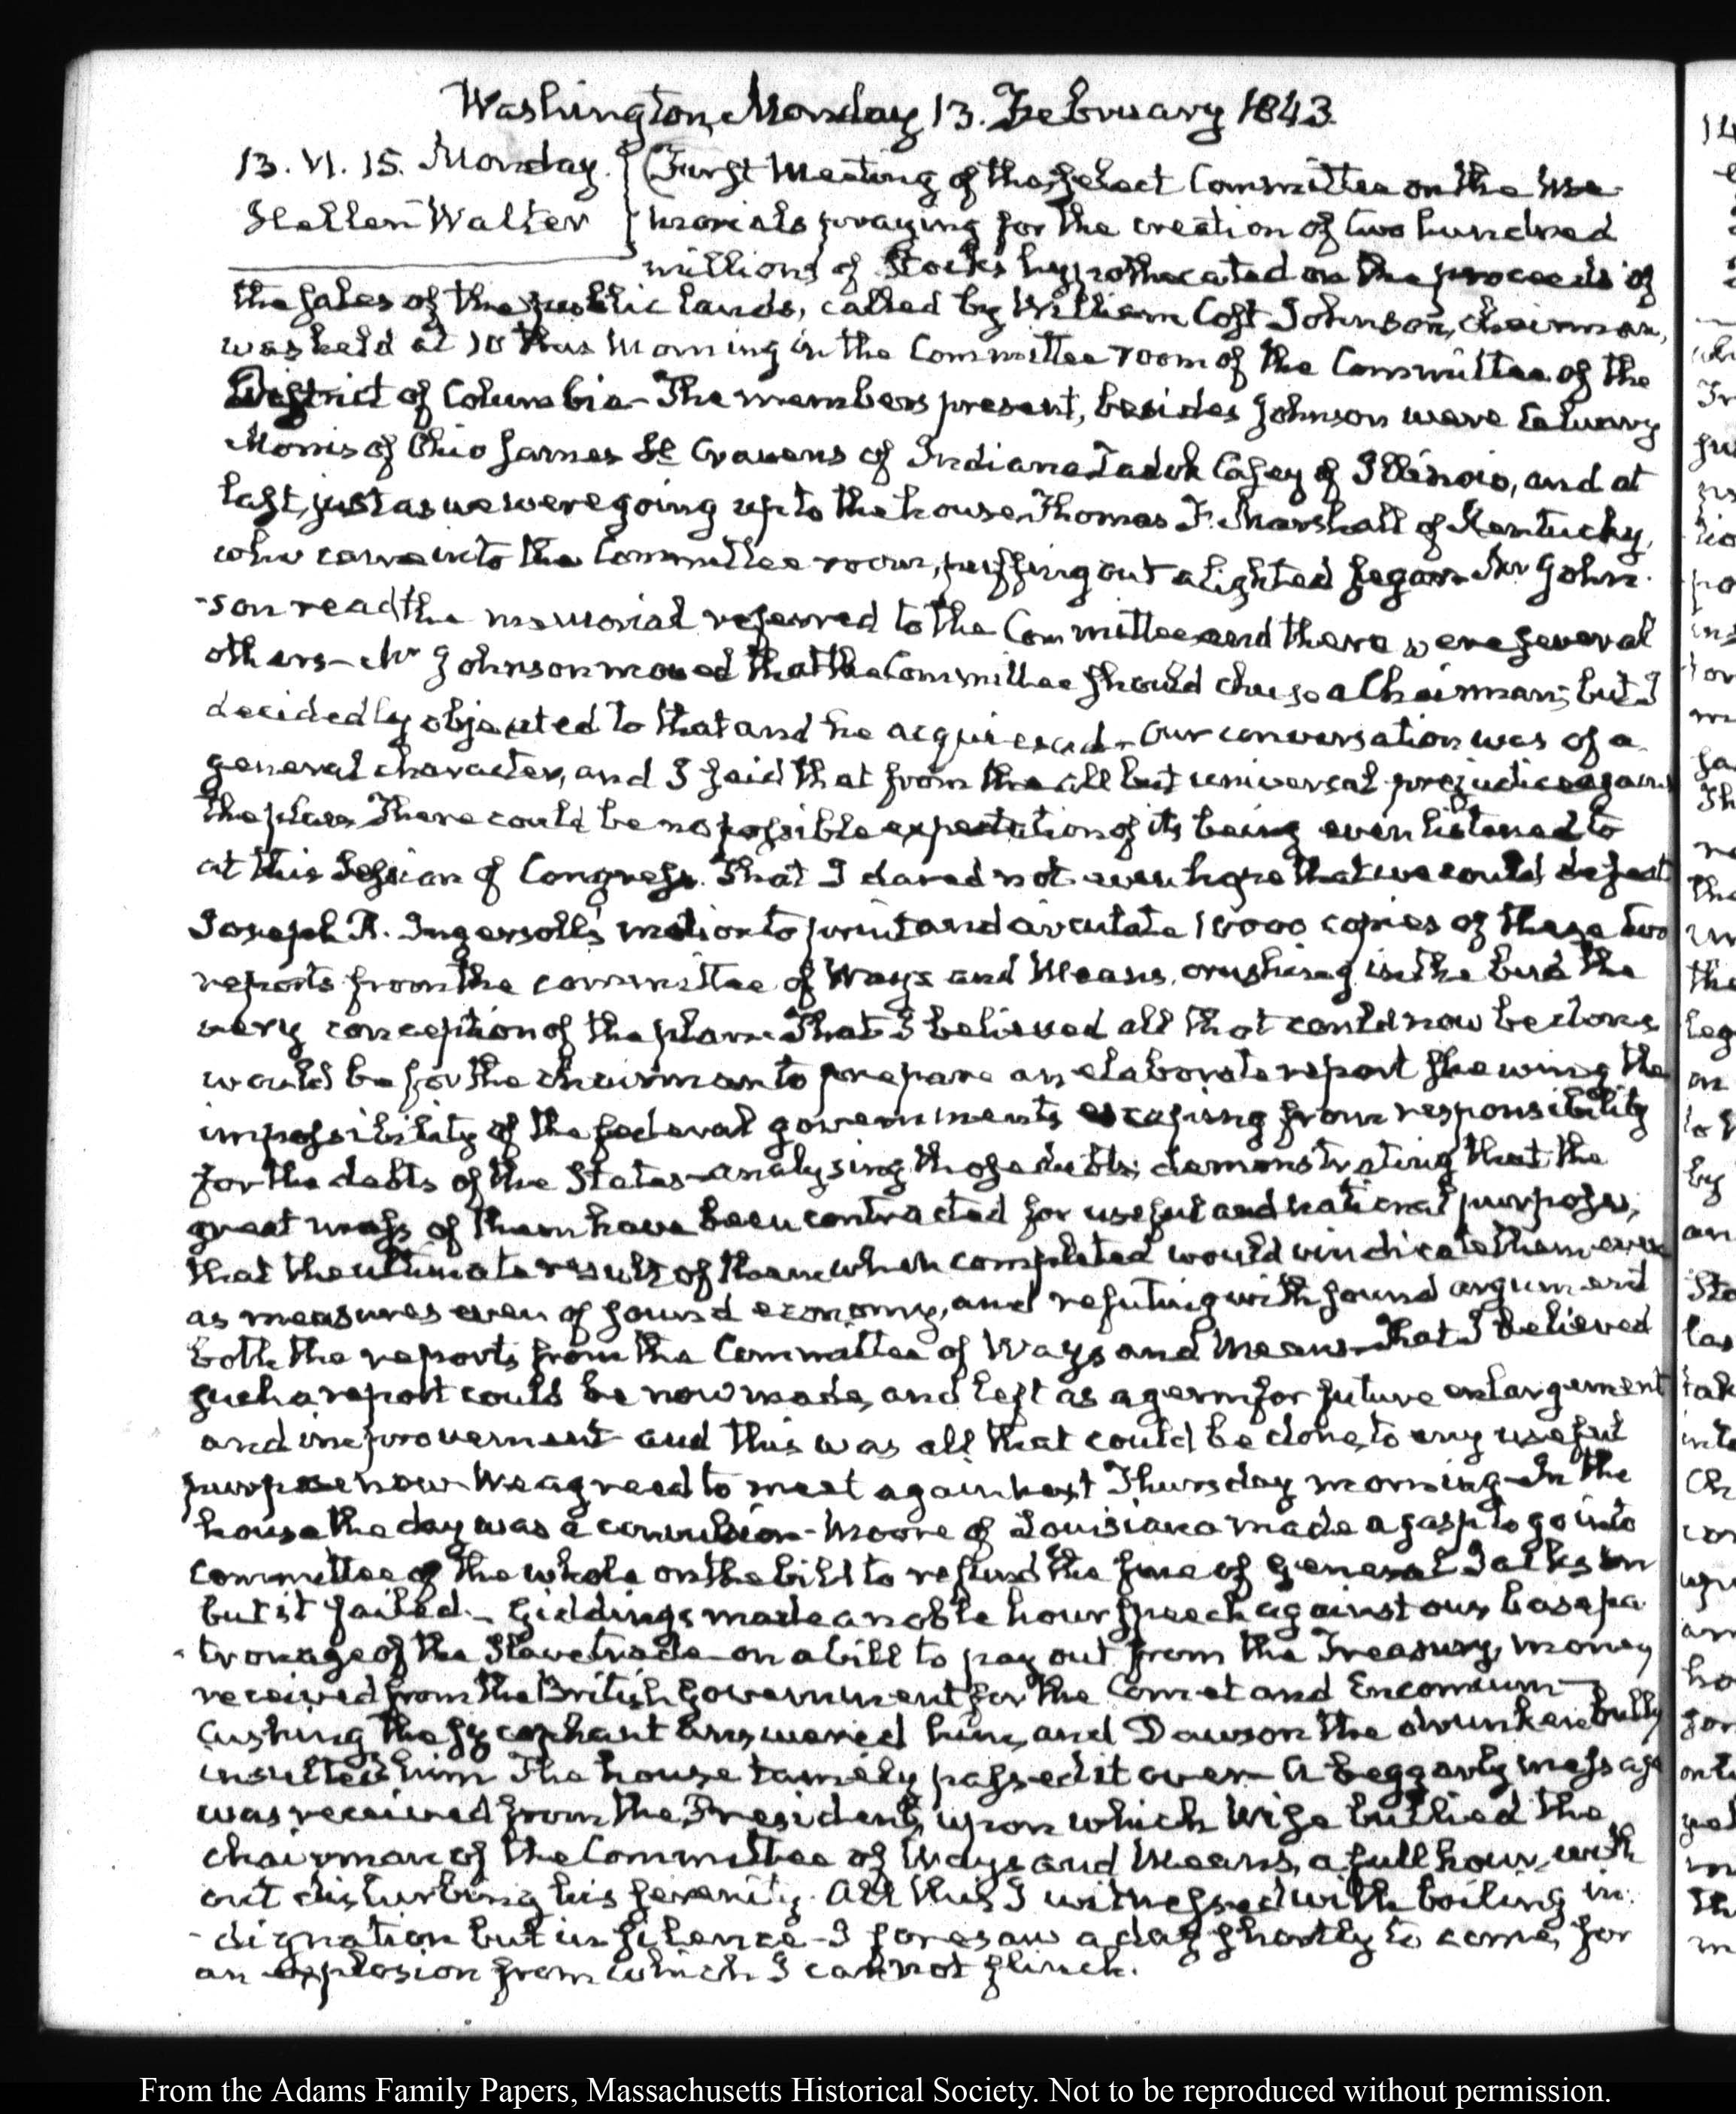 Washington, Monday 13. February 1843.
13. VI. 15. Monday.
Hellen Walter
First meeting of the select Committee on the Me-
morials praying for the creation of two hundred
millions of Stocks hypothecated on the proceeds of
the sales of the public lands, called by William Cost Johnson, chairman,
was held at 10 this morning in the Committee room of the Committee of the
District of Columbia - The members present, besides Johnson were Calvary
Morris of Ohio James H. Cravens of Indiana Zadok Casey of Illinois, and at
last, just as we were going up to the house, Thomas F. Marshall of Kentucky,
who came into the Committee room, puffing out a lighted segar - Mr John-
-son read the memorial referred to the Committee and there were several
others - Mr Johnson moved that the Committee should chuse a Chairman; but I
decidedly objected to that and he acquiesced - Our conversation was of a
general character, and I said that from the all but universal prejudice against
the plan There could be no possible expectation of its being even listened to
at this Session of Congress. That I dared not even hope that we could defeat
Joseph R. Ingersoll's motion to print and circulate 10000 copies of these two
reports from the committee of Ways and Means, crushing in the bud the
very conception of the plan - That I believed all that could now be done
would be for the chairman to prepare an elaborate report shewing the
impossibility of the federal government's escaping from responsibility
for the debts of the States - analysing those debts; demonstrating that the
great mass of them have been contracted for useful and national purposes;
that the ultimate results of them when completed would vindicate them even
as measures even of sound economy, and refuting with sound argument
both the reports from the Committee of Ways and Means - That I believed
such a report could be now made, and left as a germ for future enlargement
and improvement and this was all that could be done, to any useful
purpose now - We agreed to meet again next Thursday morning - In the
house the day was a convulsion - Moore of Louisiana made a gasp to go into
committee of the whole on the bill to refund the fine of General Jackson
but it failed. - Giddings made a noble hour speech against our base pa
-tronage of the Slave trade - on a bill to pay out from the Treasury, money
received from the British Government for the Comet and Encomium -
Cushing the sycophant answered him, and Dawson the drunken bully
insulted him The house tamely passed it over - A beggarly message
was received from the President, upon which Wise bullied the
chairman of the Committee of Ways and Means, a full hour, with
out disturbing his serenity. All this I witnessed with boiling in-
-dignation but in silence - I foresaw a day shortly to come, for
an explosion from which I cannot flinch.
From the Adams Family Papers, Massachusetts Historical Society. Not to be reproduced without permission.